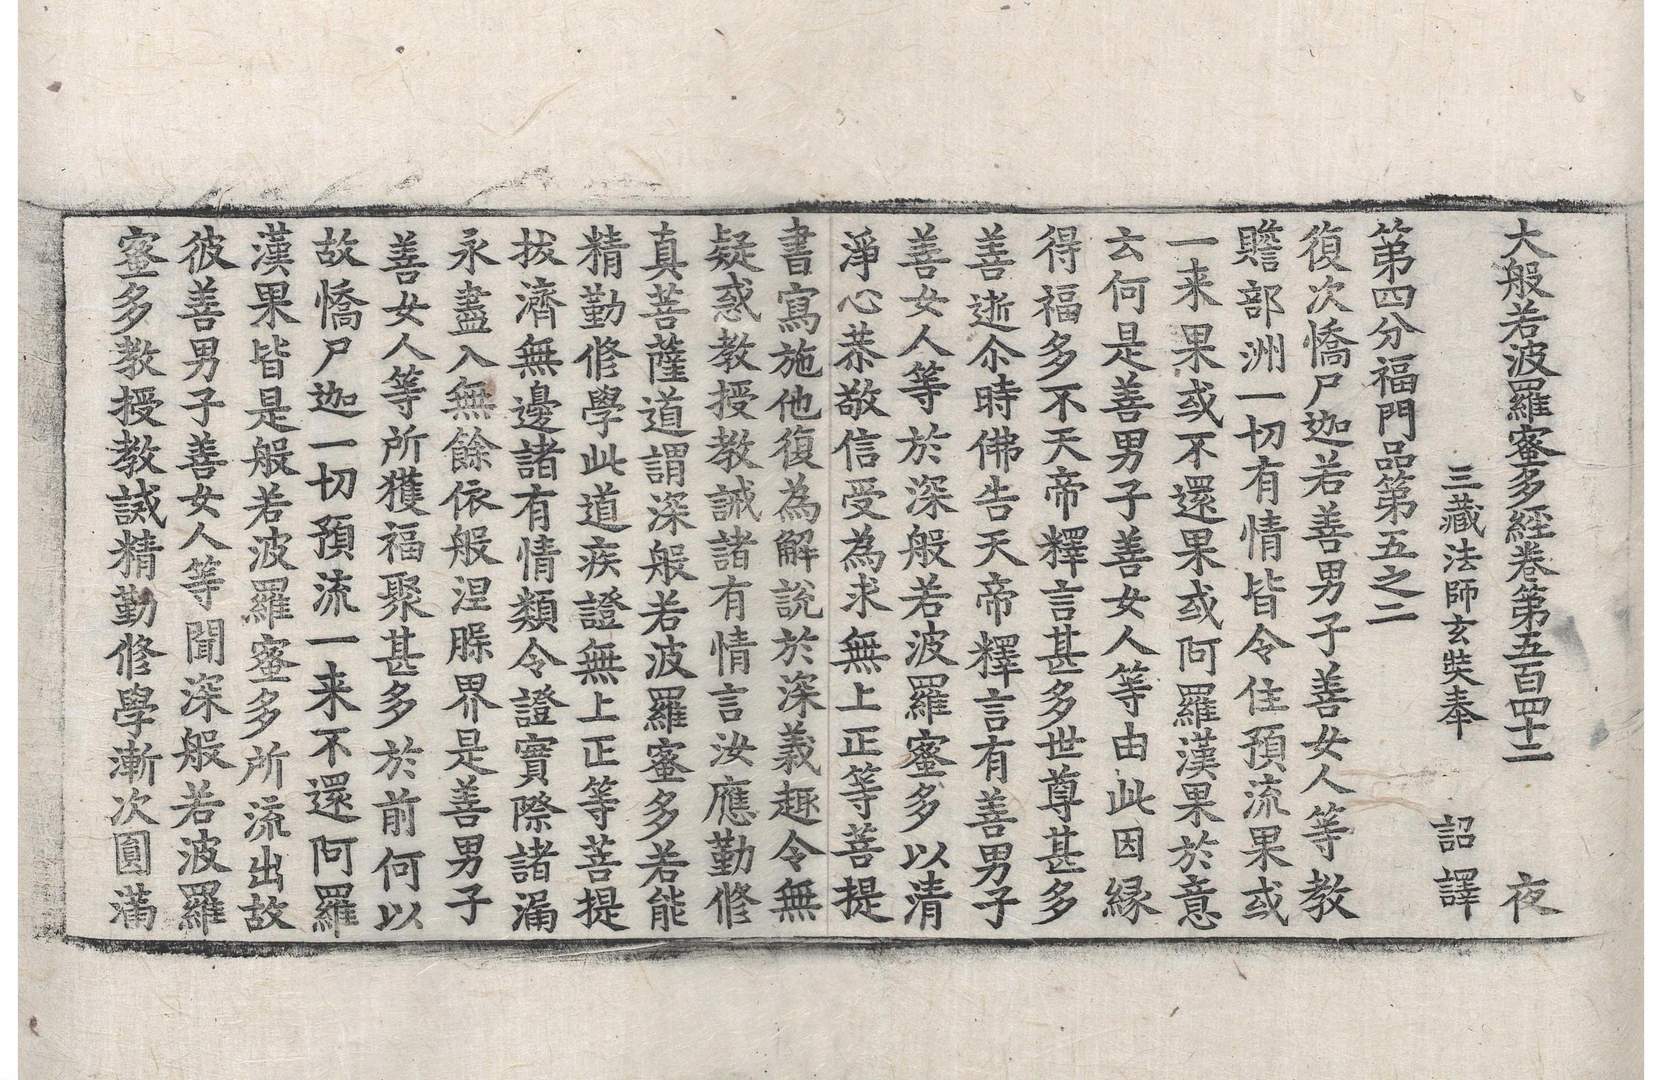 大般若波羅蜜多經卷第五百四十二 夜
三藏法師玄奘奉 詔譯
第四分福門品第五之二
復次憍尸迦若善男子善女人等教
贍部洲一切有情皆令住預流果或
一来果或不還果或阿羅漢果於意
云何是善男子善女人等由此因縁
得福多不天帝釋言甚多世尊甚多
善逝尒時佛告天帝釋言有善男子
善女人等於深般若波羅蜜多以清
淨心恭敬信受為求無上正等菩提
書寫施他復為解説於深義趣令無
疑惑教授教誡諸有情言汝應勤修
真菩薩道謂深般若波羅蜜多若能
精勤修學此道疾證無上正等菩提
拔濟無邊諸有情類令證實際諸漏
永盡入無餘依般涅槃界是善男子
善女人等所獲福聚甚多於前何以
故憍尸迦一切預流一来不還阿羅
漢果皆是般若波羅蜜多所流出故
彼善男子善女人等聞深般若波羅
蜜多教授教誡精勤修學漸次圓滿